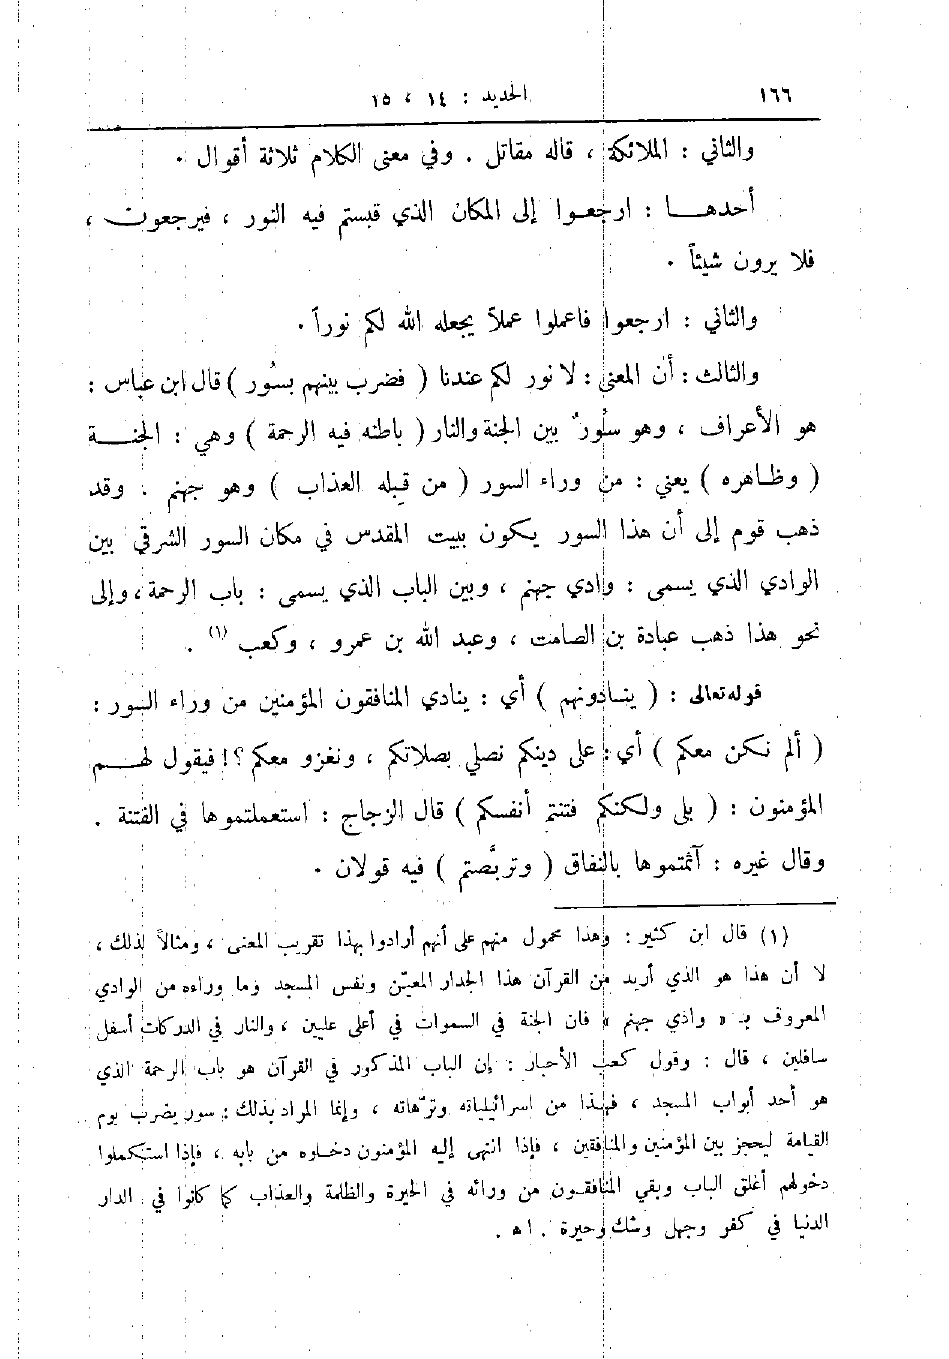 ١٦٦
الحديد : ١٤ ، ١٥
والثاني : الملائكة ، قاله مقاتل . وفي معنى الكلام ثلاثة أقوال .
أحدهـا : ارجعـوا إلى المكان الذي قبستم فيه النور ، فيرجعون ،
فلا يرون شيئاً .
والثاني : ارجعوا فاعملوا عملاً يجعله الله لكم نوراً .
والثالث : أن المعنى : لا نور لكم عندنا ( فضرب بينهم بسُور ) قال ابن عباس :
هو الأعراف ، وهو سُورٌ بين الجنة والنار ( باطنه فيه الرحمة ) وهي : الجنـــة
( وظـاهره ) يعني : من وراء السور ( من قِبله العذاب ) وهو جهنم . وقد
ذهب قوم إلى أن هذا السور يكون ببيت المقدس في مكان السور الشرقي بين
الوادي الذي يسمى : وادي جهنم ، وبين الباب الذي يسمى : باب الرحمة ، وإلى
نحو هذا ذهب عبادة بن الصامت ، وعبد الله بن عمرو ، وكعب (١) .
قوله تعالى : ( ينـادونهم ) أي : ينادي المنافقون المؤمنين من وراء السور :
( ألم نكن معكم ) أي : على دينكم نصلي بصلاتكم ، ونغزو معكم ؟! فيقول لهـم
المؤمنون : ( بلى ولكنكم فتنتم أنفسكم ) قال الزجاج : استعملتموها في الفتنة .
وقال غيره : آثمتموها بالنفاق ( وتربَّصتم ) فيه قولان .
(١) قال ابن كثير : وهذا محمول منهم على أنهم أرادوا بهذا تقريب المعنى ، ومثالاً لذلك ،
لا أن هذا هو الذي أريد من القرآن هذا الجدار المعيّن ونفس المسجد وما وراءه من الوادي
المعروف بـ « وادي جهنم » فان الجنة في السموات في أعلى عليين ، والنار في الدركات أسفل
سافلين ، قال : وقول كعب الأحبار : إن الباب المذكور في القرآن هو باب الرحمة الذي
هو أحد أبواب المسجد ، فهذا من اسرائيلياته وترّهاته ، وإنما المراد بذلك : سور يضرب يوم
القيامة ليحجز بين المؤمنين والمنافقين ، فإذا انتهى إليه المؤمنون دخلوه من بابه ، فإذا استكملوا
دخولهم أغلق الباب وبقي المنافقـون من ورائه في الحيرة والظلمة والعذاب كما كانوا في الدار
الدنيا في كفر وجهل وشك وحيرة . اهـ .